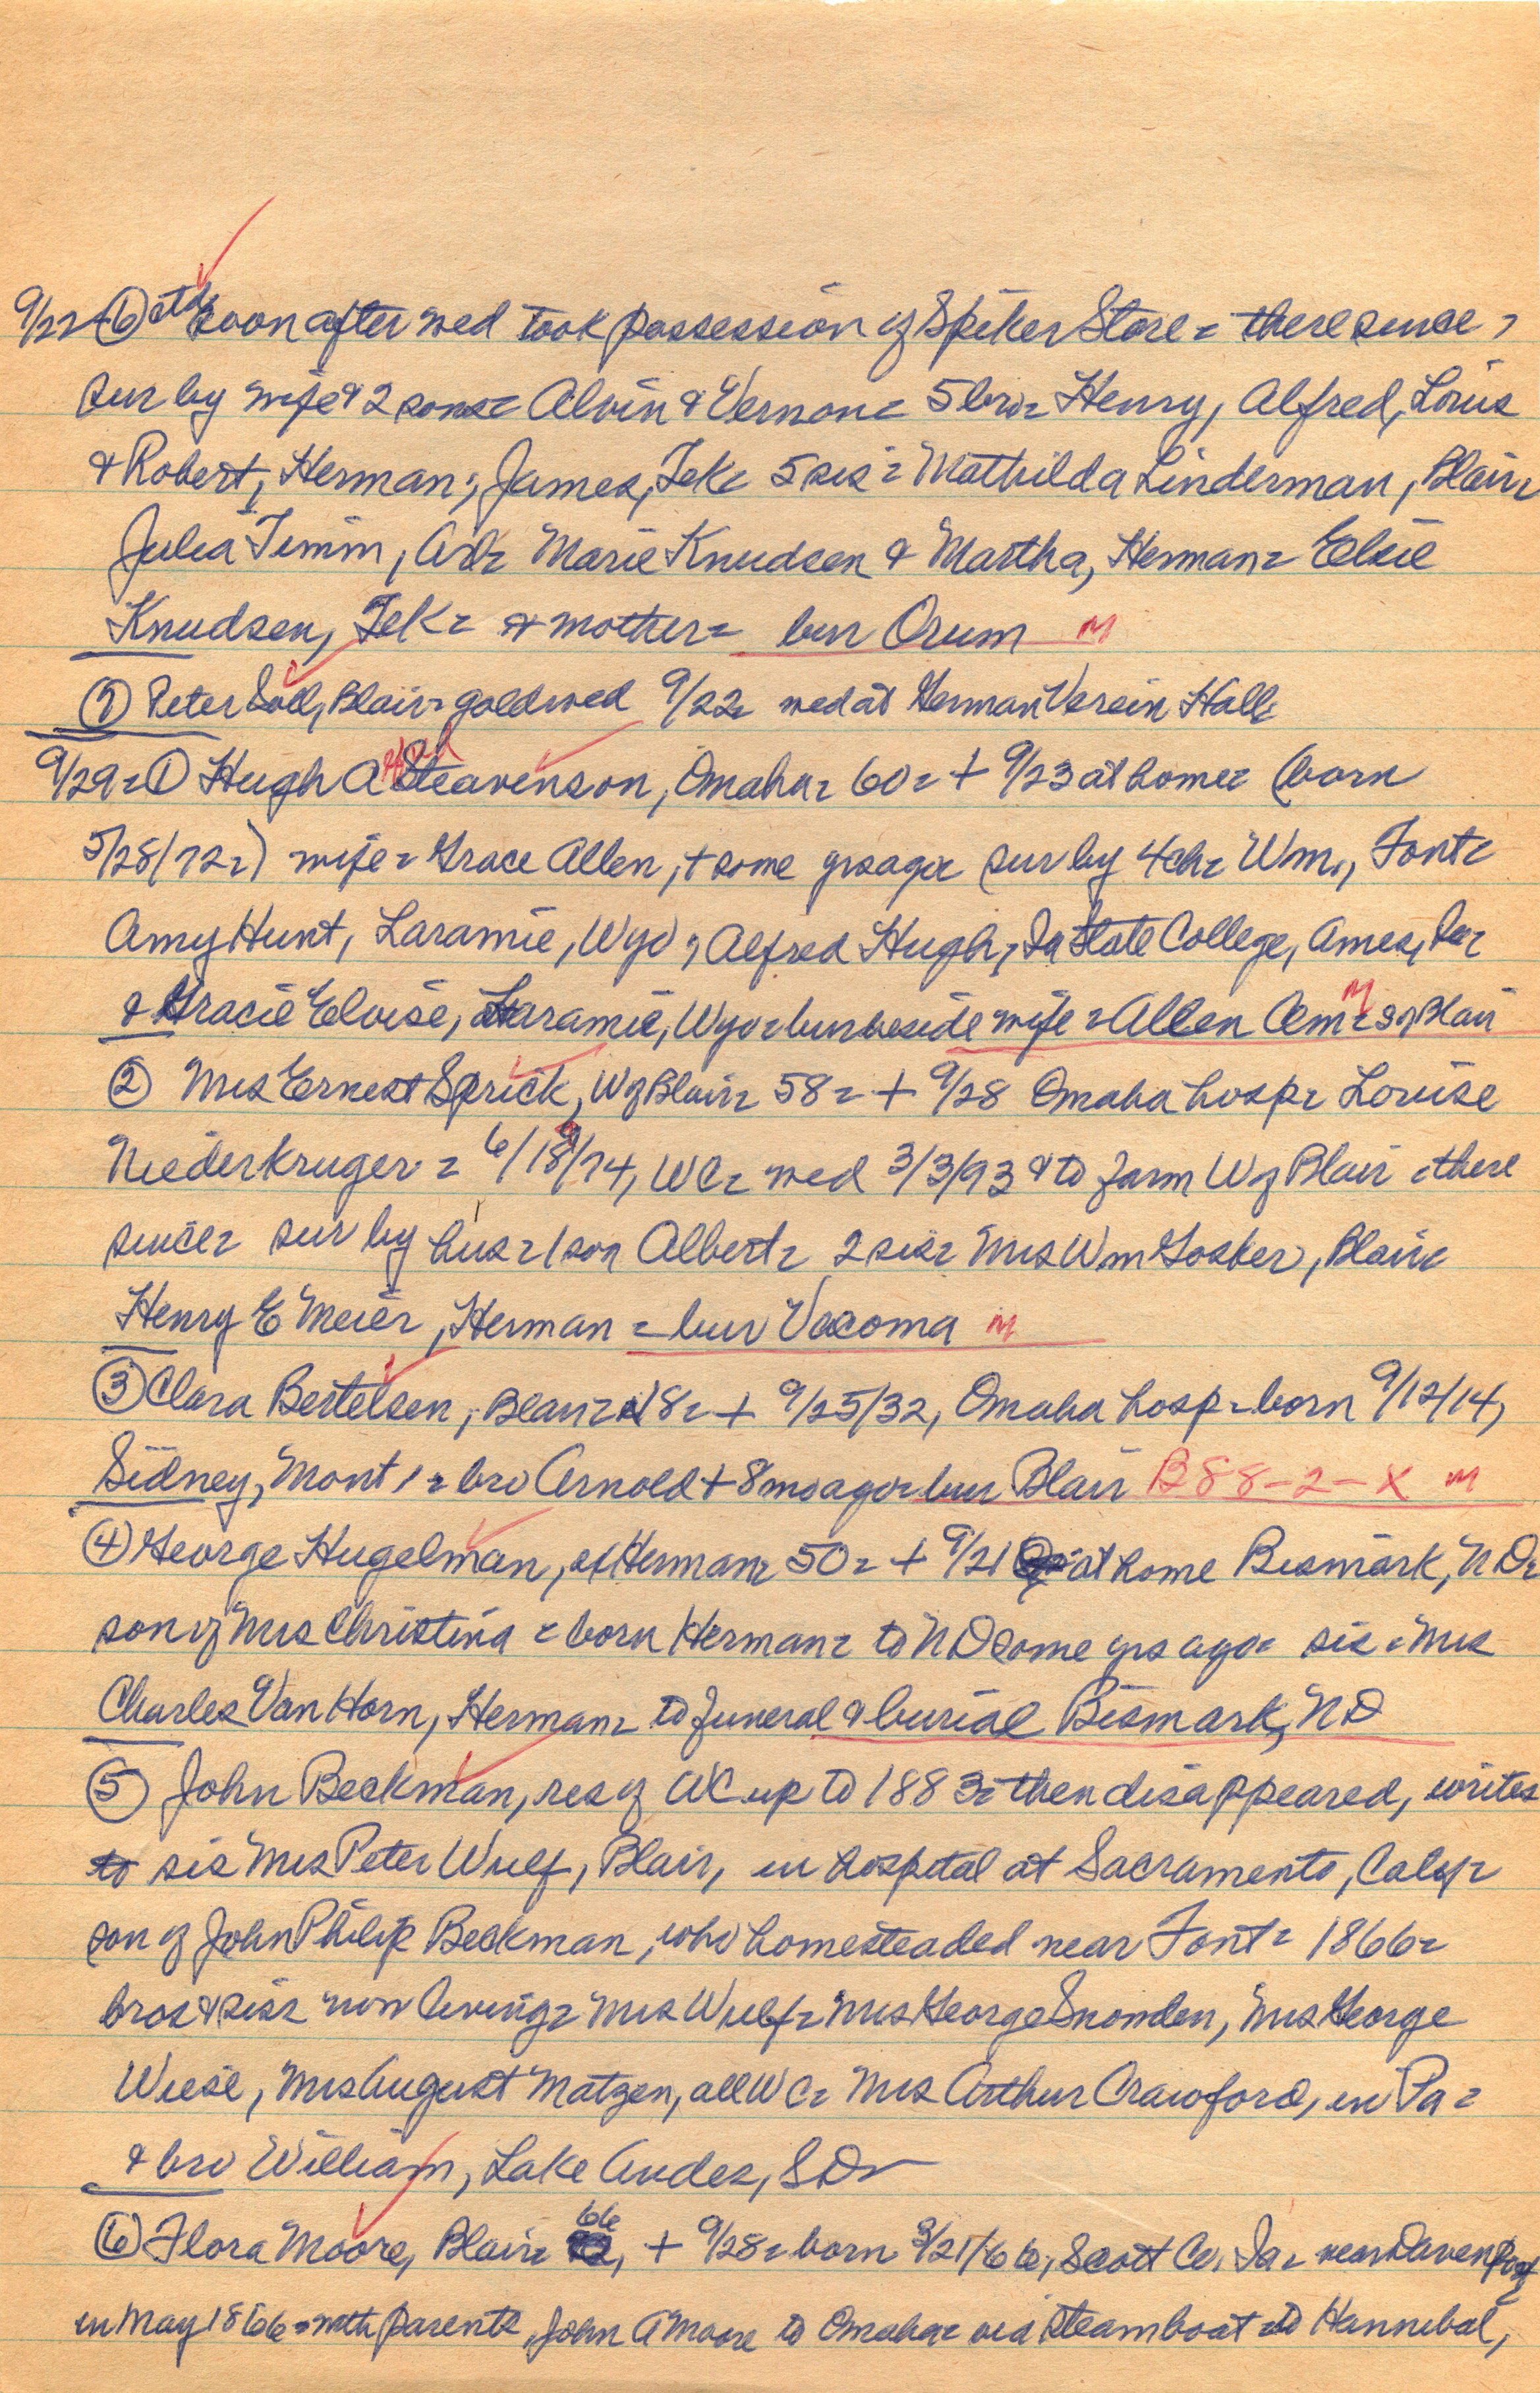 9/22 = ⑥ ctd Soon after wed took possession of Spiker Store = there since =
sur by wife & 2 sons = Alvin & Vernon = 5 bro = Henry, Alfred, Louis
& Robert, Herman; James, Tek = 5 sis = Mathilda Linderman, Blair =
Julia Timm, Arl = Marie Knudsen & Martha, Herman = Elsie
Knudsen, Tek = & mother = bur Orum M
⑦ Peter Soll, Blair = gold wed 9/22 = wed at German Verein Hall =
9/29 = ① Hugh A Steavenson, Omaha = 60 = + 9/23 at home = (born
5/28/72 =) wife = Grace Allen, + some yrs ago = sur by 4 ch = Wm., Font =
Amy Hunt, Laramie, Wyo; Alfred Hugh, Ia State College, Ames, Ia =
& Gracie Eloise, Laramie, Wyo = bur beside wife = Allen Cem = S of Blair M
② Mrs Ernest Sprick, W of Blair = 58 = + 9/28 Omaha hosp = Louise
Niederkruger = 6/18/74, WC = wed 3/3/93 & to farm W of Blair = there
since = sur by hus = 1 son Albert = 2 sis = Mrs Wm Gosker, Blair =
Henry E Meier, Herman = bur Vacoma M
③ Clara Bertelsen, Blair = 18 = + 9/25/32, Omaha hosp = born 9/12/14,
Sidney, Mont. = bro Arnold + 8 mo ago = bur Blair B88-2-X M
④ George Hugelman, of Herman = 50 = + 9/21 at home Bismark, ND =
son of Mrs Christina = born Herman = to ND some yrs ago = sis = Mrs
Charles Van Horn, Herman = to funeral & burial Bismark, ND
⑤ John Beckman, res of WC up to 1883 = then disappeared, writes
to sis Mrs Peter Wulf, Blair, in hospital at Sacramento, Calif =
son of John Philip Beckman, who homesteaded near Font = 1866 =
bros & sis = now living = Mrs Wulf = Mrs George Snowden, Mrs George
Wiese, Mrs August Matzen, all WC = Mrs Arthur Crawford, in Pa =
& bro William, Lake Andes, SD
⑥ Flora Moore, Blair = 66, + 9/28 = born 3/21/66, Scott Co. Ia = near Davenport
in May 1866 = with parents, John A Moore to Omaha = via steamboat to Hannibal,